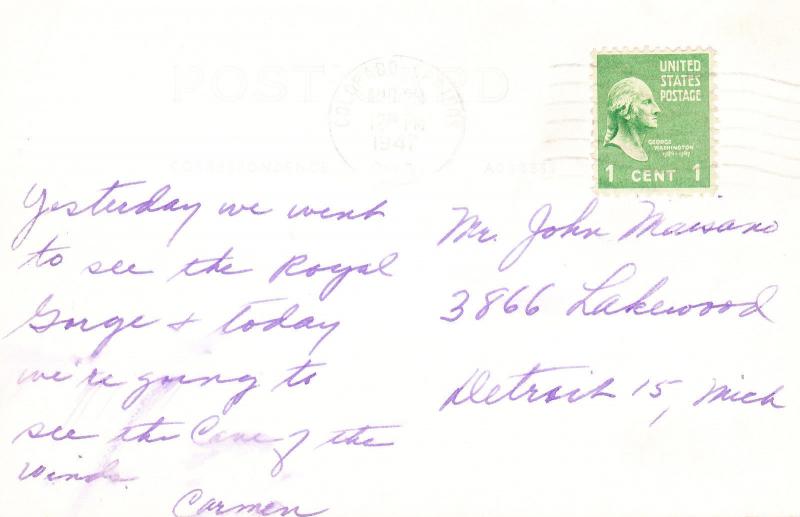 POST CARD
COLORADO
1947
CORRESPONDENCE
ADDRESS
UNITED
STATES
POSTAGE
GEORGE
WASHINGTON
1789-1797
1 CENT 1
Yesterday we went
to see the Royal
Gorge & today
we're going to
see the Cave of the
Winds.
Carmen
Mr. John Maisano
3866 Lakewood
Detroit 15, Mich